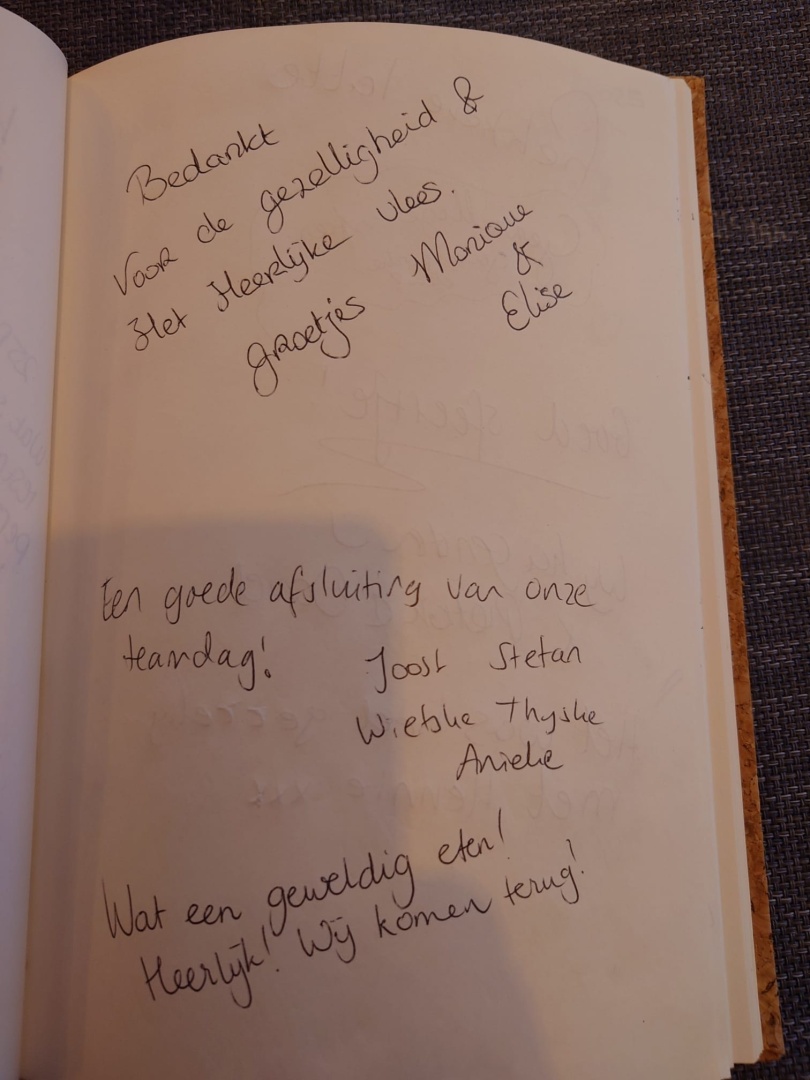 Bedankt
Voor de gezelligheid &
Het Heerlijke vlees.
groetjes Monique
&
Elise
Een goede afsluiting van onze
teamdag!
Joost Stefan
Wiebke Thyske
Anieke
Wat een geweldig eten!
Heerlijk! Wij komen terug!